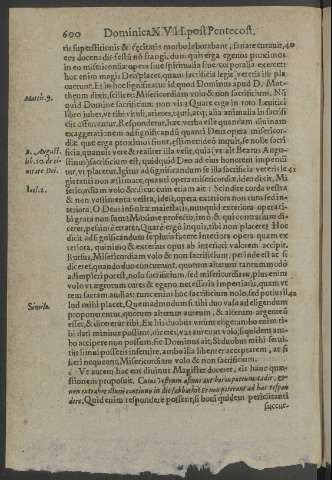 600 Dominica XVII. post Pentecost.
ris superstitionis & cæcitatis morbo laborabant, sanare curauit, 40
eos docens die festo nõ frangi, dum quis erga egenos proximos
in eo misericordiæ opera siue spiritualia siue corporalia exercet:
hoc enim magis Deo placet, quam sacrificia legis veteris ille pla
cuerunt.
Matth. 9.
thæum dixit, scilicet: Misericordiam volo & non sacrificium. Nũ
quid Domine sacrificium non vis? Quare erga in toto Leuitici
libro iubes, vt tibi vituli, arietes, agni, aues, alia animalia in sacrifi-
cia offerantur. Respondetur, hæc verba esse quandam diuinam
exaggerationem ad significandũ quanti Deus opera misericor-
diæ quæ erga proximos sunt, æstimet: nõ inquit, se nolle sacri-
B. August.
lib. 10. de ci-
uitate Dei.
ficia, quamuis vere & realiter illa velit, quia (vt ait Beatus Augu-
stinus) sacrificium est, quidquid Deo ad eius honorem impenditur
tur, vt placetur. Igitur ad significandum se illa sacrificia veteris le 41
gis tanti non æstimare, quanti opera misericordiæ, ideo dixit, Mi
Ioel. 2.
sericordiam volo &c. sicut cum etiam ait: Scindite corda vestra
& non vestimenta vestra, idest, opera exteriora non tunsed in-
teriora. O Deus infinitæ maiestatis, nunquid exteriora opera ti-
bi grata non sunt? Maxime profecto, imò & qui contrarium di-
ceret, pessimè erraret. Quare ergo inquis, tibi non placere? Hoc
dicit ad significandum se pluris facere interiora opera quam ex
teriora, quinimo & exterius opus ab interiori valorem accipit.
Rursus, Misericordiam volo & non sacrificium, perinde est ac si
diceret, quando duo concurrunt, quorum alterum tantummodò
adimpleri potest, nolo sacrificium, sed misericordiam, plus enim
volo vt ægrotum cures & egeno necessaria impertiaris, quam vt
tem sacram audias: tunc enim hoc sacrificium nolo, sed potius il- 42
lud mihi placet. Quemadmodum si tibi duo vasa ad eligendum
Simile.
proponerentur, quorum alterum aureum, & alterum argenteũ
esset, & diceretur tibi, Ex his duobus vnum elige: ambo enim ti-
bi dari minime possunt, diceres, vas aureum volo, siquidem am-
bo accipere non possum: sic Dominus ait, Si duobus mihi serui-
tiis simul possetis inseruire, ambo illa libenter acceptarem, at si
fieri nequeunt, Misericordiam volo & non sacrificium.
¶ Vt autem hæc eos diuinus Magister doceret, eis hanc quæ-
stionem proposuit. Cuius vestrum asinus aut bos in puteum cadet, &
non extrahet illum continuo in die sabbathi? Et non poterant ad hæc respon-
dere. Quid enim respondere possent, si boni quidem periclitanti
succur-